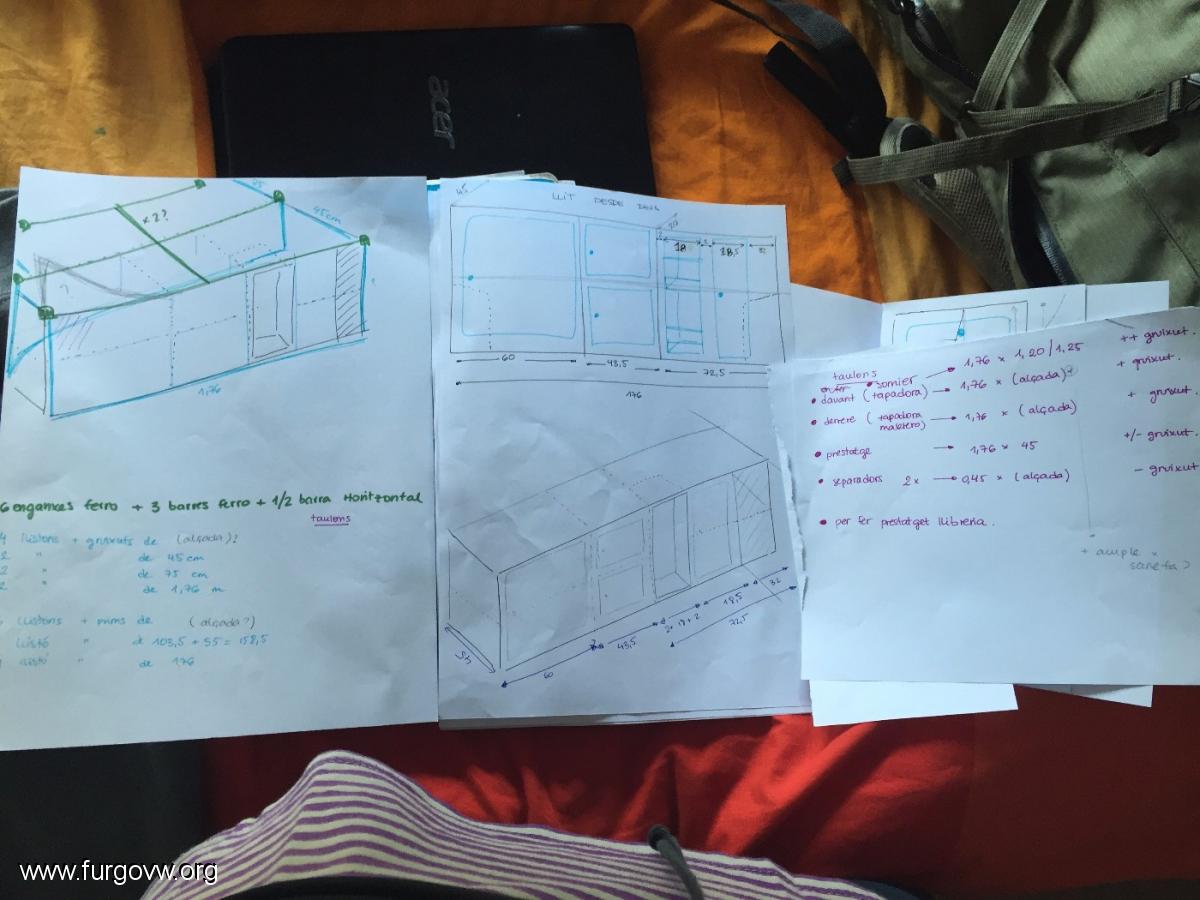 acer
x2?
45cm
1,76
6 enganxes ferro + 3 barres ferro + 1/2 barra Horitzontal
taulons
4 llistons + gruixuts de (alçada)?
2 " de 45 cm
2 " de 75 cm
2 " de 1,76 m
llistons + prims de (alçada?)
llistó " de 103,5 + 55 = 158,5
llistó " de 176
45
LLIT DESDE
18
18,5
32
60
43,5
72,5
176
32
18,5
43,5
72,5
60
45
taulons
• somier → 1,76 x 1,20 / 1,25 ++ gruixut.
• davant (tapadora) → 1,76 x (alçada)? + gruixut.
• derrere (tapadora maletero) → 1,76 x (alçada) + gruixut.
• prestatge → 1,76 x 45 +/- gruixut.
• separadors 2x → 0,45 x (alçada) - gruixut
• per fer prestatget llibreria.
+ ample x
sanefa?
www.furgovw.org